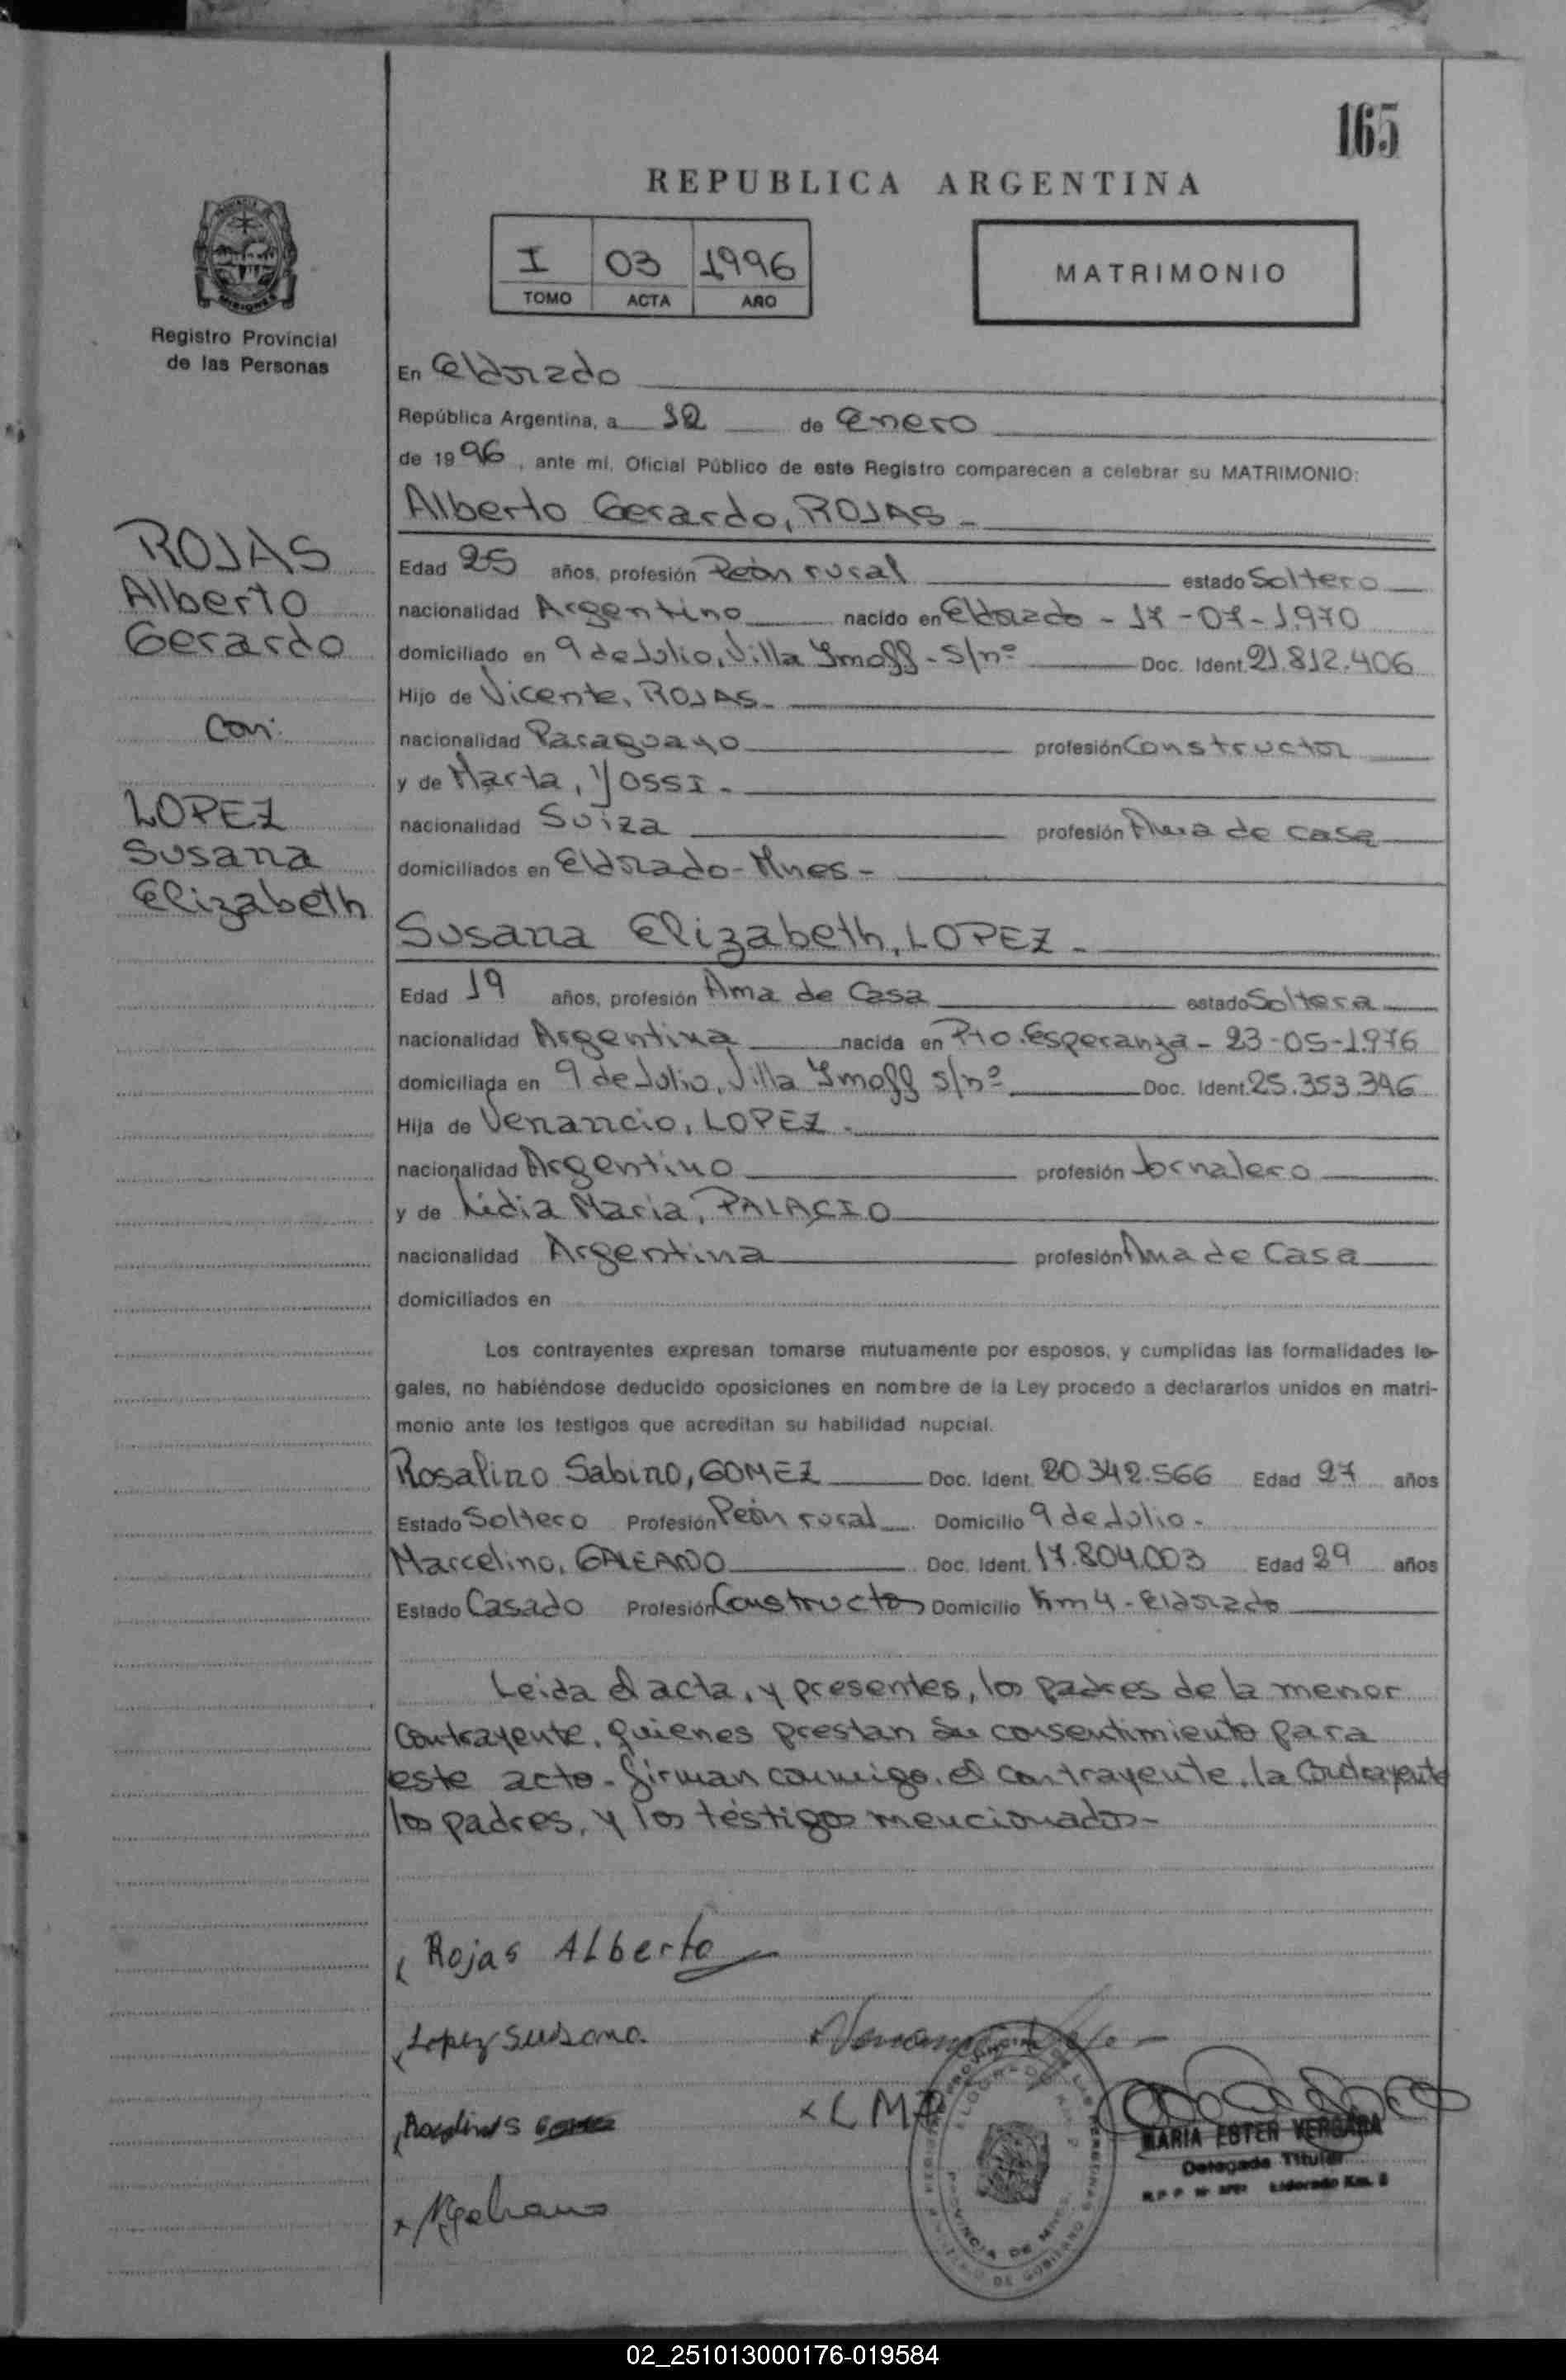 165
REPUBLICA ARGENTINA
I 03 1996
TOMO ACTA AÑO
MATRIMONIO
MISIONES
Registro Provincial
de las Personas
En Eldorado
República Argentina, a 12 de Enero
de 1996, ante mí, Oficial Público de este Registro comparecen a celebrar su MATRIMONIO:
Alberto Gerardo, ROJAS -
ROJAS
Alberto
Gerardo
con:
LOPEZ
Susana
Elizabeth
Edad 25 años, profesión Peón rural estado Soltero
nacionalidad Argentino nacido en Eldorado - 17-07-1.970
domiciliado en 9 de Julio, Villa - s/nº Doc. Ident. 21.812.406
Hijo de Vicente, ROJAS -
nacionalidad Paraguayo profesión Constructor
y de Marta, YOSSI -
nacionalidad Suiza profesión Ama de casa
domiciliados en Eldorado - Mnes -
Susana Elizabeth, LOPEZ -
Edad 19 años, profesión Ama de Casa estado Soltera
nacionalidad Argentina nacida en Pto. Esperanza - 23-05-1.976
domiciliada en 9 de Julio, Villa s/nº Doc. Ident. 25.353.346
Hija de Venancio, LOPEZ -
nacionalidad Argentino profesión Jornalero
y de Lidia Maria, PALACIO
nacionalidad Argentina profesión Ama de Casa
domiciliados en
Los contrayentes expresan tomarse mutuamente por esposos, y cumplidas las formalidades le-
gales, no habiéndose deducido oposiciones en nombre de la Ley procedo a declararlos unidos en matri-
monio ante los testigos que acreditan su habilidad nupcial.
Rosalino Sabino, GOMEZ Doc. Ident. 20.342.566 Edad 27 años
Estado Soltero Profesión Peón rural Domicilio 9 de Julio -
Marcelino, GALEANO Doc. Ident. 17.804.003 Edad 29 años
Estado Casado Profesión Constructor Domicilio Km 4 - Eldorado
Leida el acta, y presentes, los padres de la menor
Contrayente, quienes prestan su consentimiento para
este acto - firman conmigo, el contrayente, la Contrayente
los padres, y los testigos mencionados -
Rojas ALberto
Lopez Susana
x L M P
MARIA ESTER VERGARA
Delegada Titular
Eldorado Km. 2
02_251013000176-019584